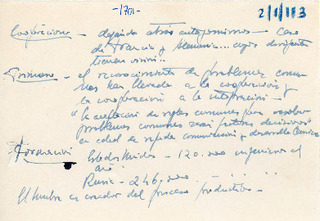 -1201-
2/1/1113
Cooperacion - dejando atrás antagonismos - Caso
de Francia y Alemania... cuyos
tienen
- el reconocimiento de problemas comu-
nes han llevado a la cooperación y
la cooperación a la integración -
"la aceptación de reglas comunes para resolver
problemas comunes
en edad de rápida comunicación y desarrollo
Formación Estados Unidos - 120.000 ingenieros al
año
Rusia - 246.000
El hombre es creador del proceso productivo -